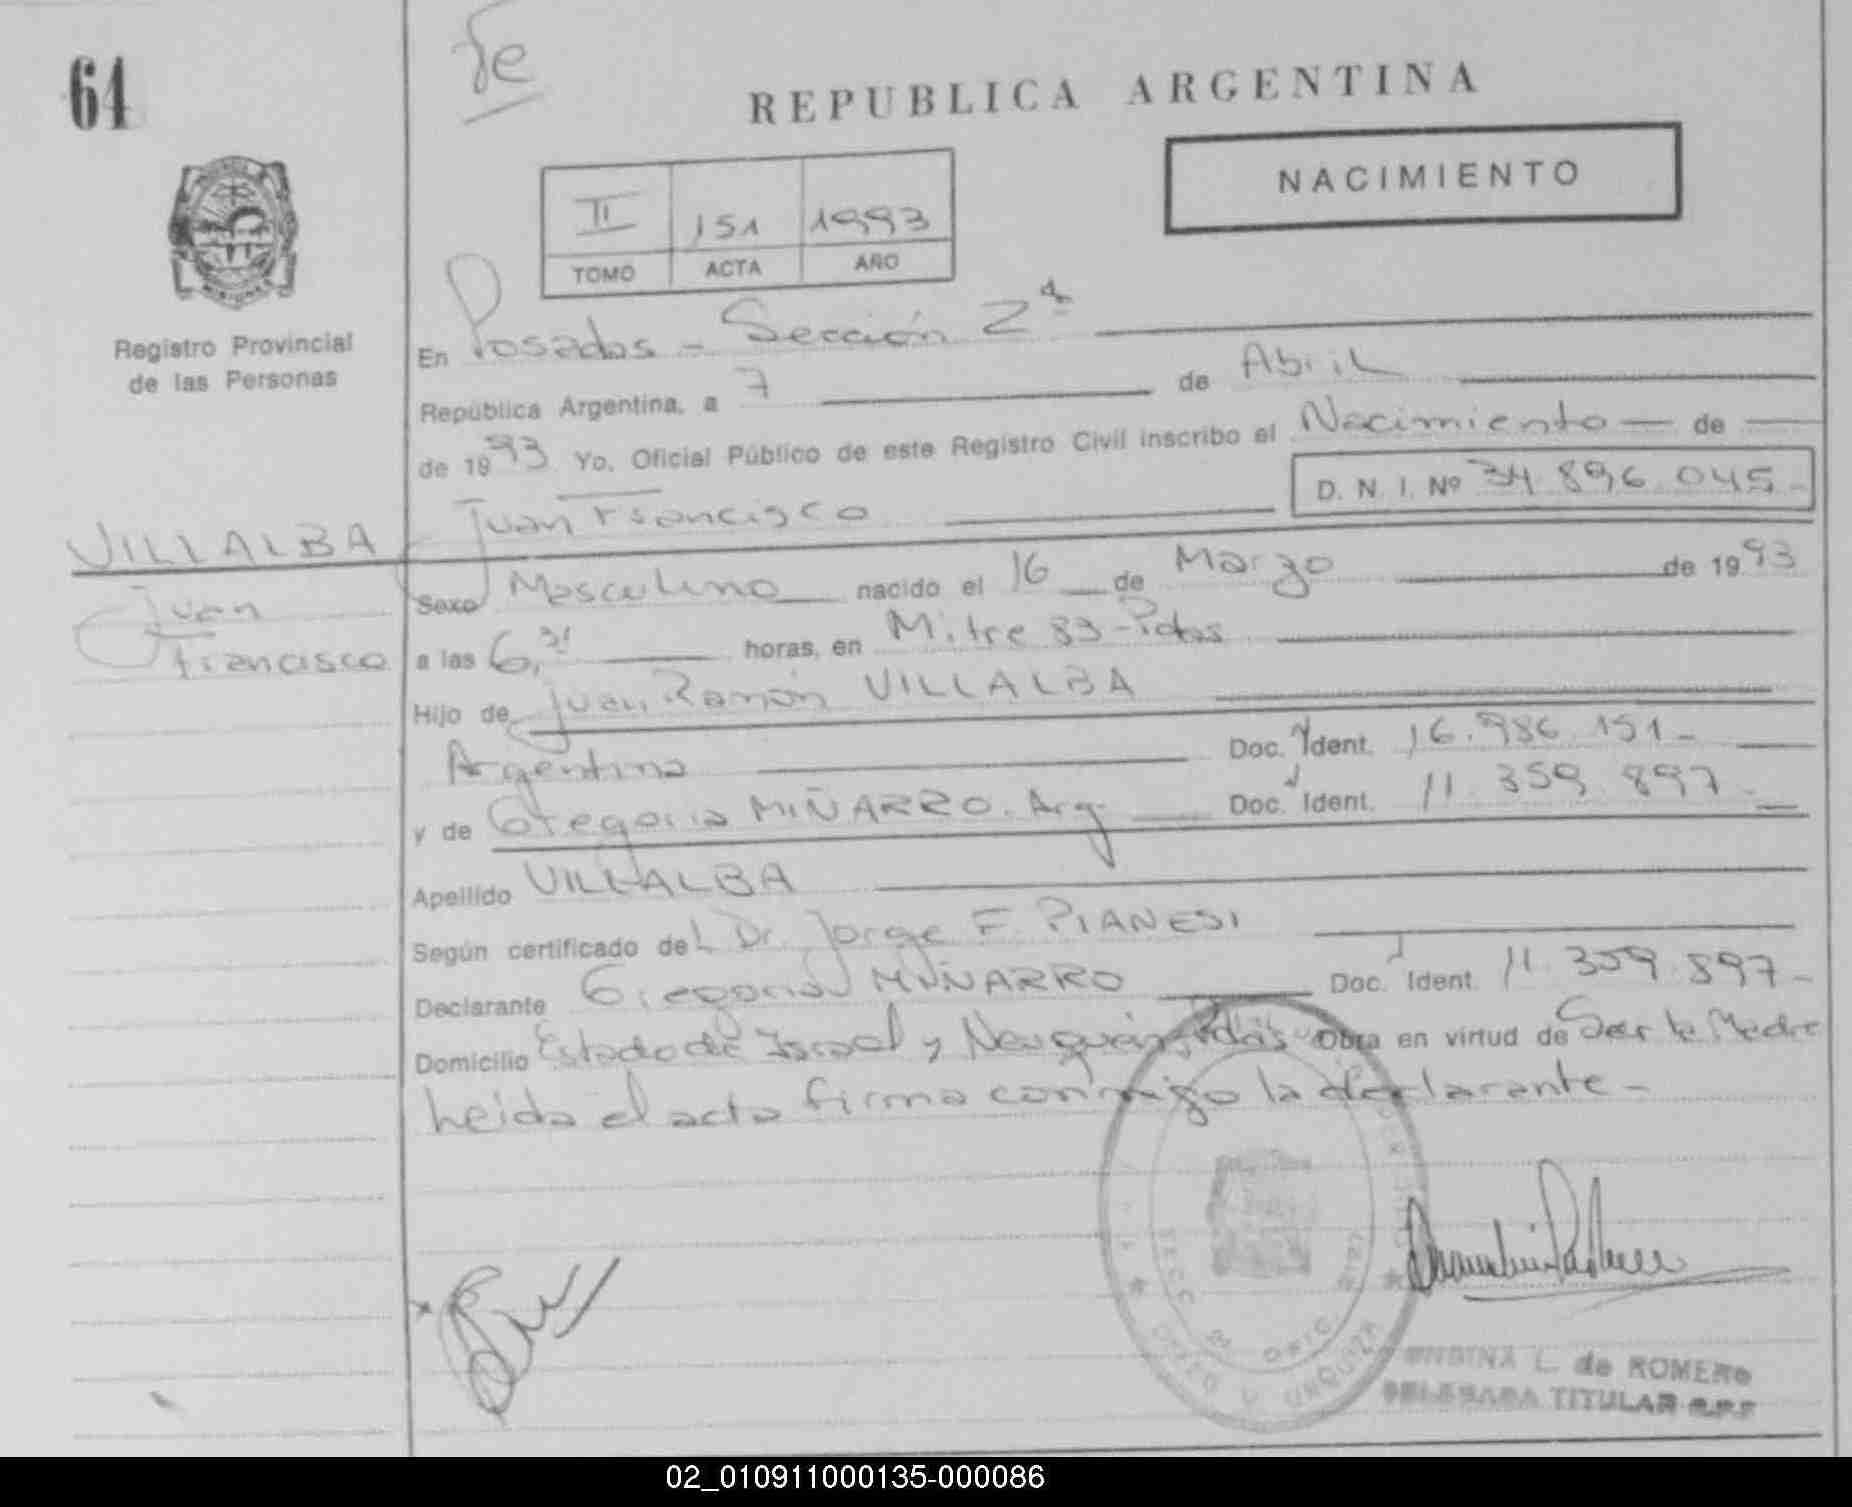 64
REPUBLICA ARGENTINA
NACIMIENTO
II 151 1993
TOMO ACTA AÑO
MISIONES
Registro Provincial
de las Personas
En Posadas - Sección 2ª
República Argentina, a 7 de Abril
de 1993 Yo, Oficial Público de este Registro Civil inscribo el Nacimiento de
Juan Francisco D. N. I. Nº 34.896.045-
VILLALBA
Juan
Francisco
Sexo Masculino nacido el 16 de Marzo de 1993
a las 6, horas, en Mitre 83 - Pdas
Hijo de Juan Ramón VILLALBA
Argentina Doc. Ident. 16.986.151-
y de Gregoria MIÑARRO. Arg. Doc. Ident. 11.359.897-
Apellido VILLALBA
Según certificado del Dr. Jorge F. PIANESI
Declarante Gregoria MIÑARRO Doc. Ident. 11.359.897-
Domicilio Estado de Israel y Neuquén, Pdas Obra en virtud de Ser la Madre
Leida el acta firma conmigo la declarante-
L. de ROMERO
DELEGADA TITULAR R.P.P.
02_010911000135-000086